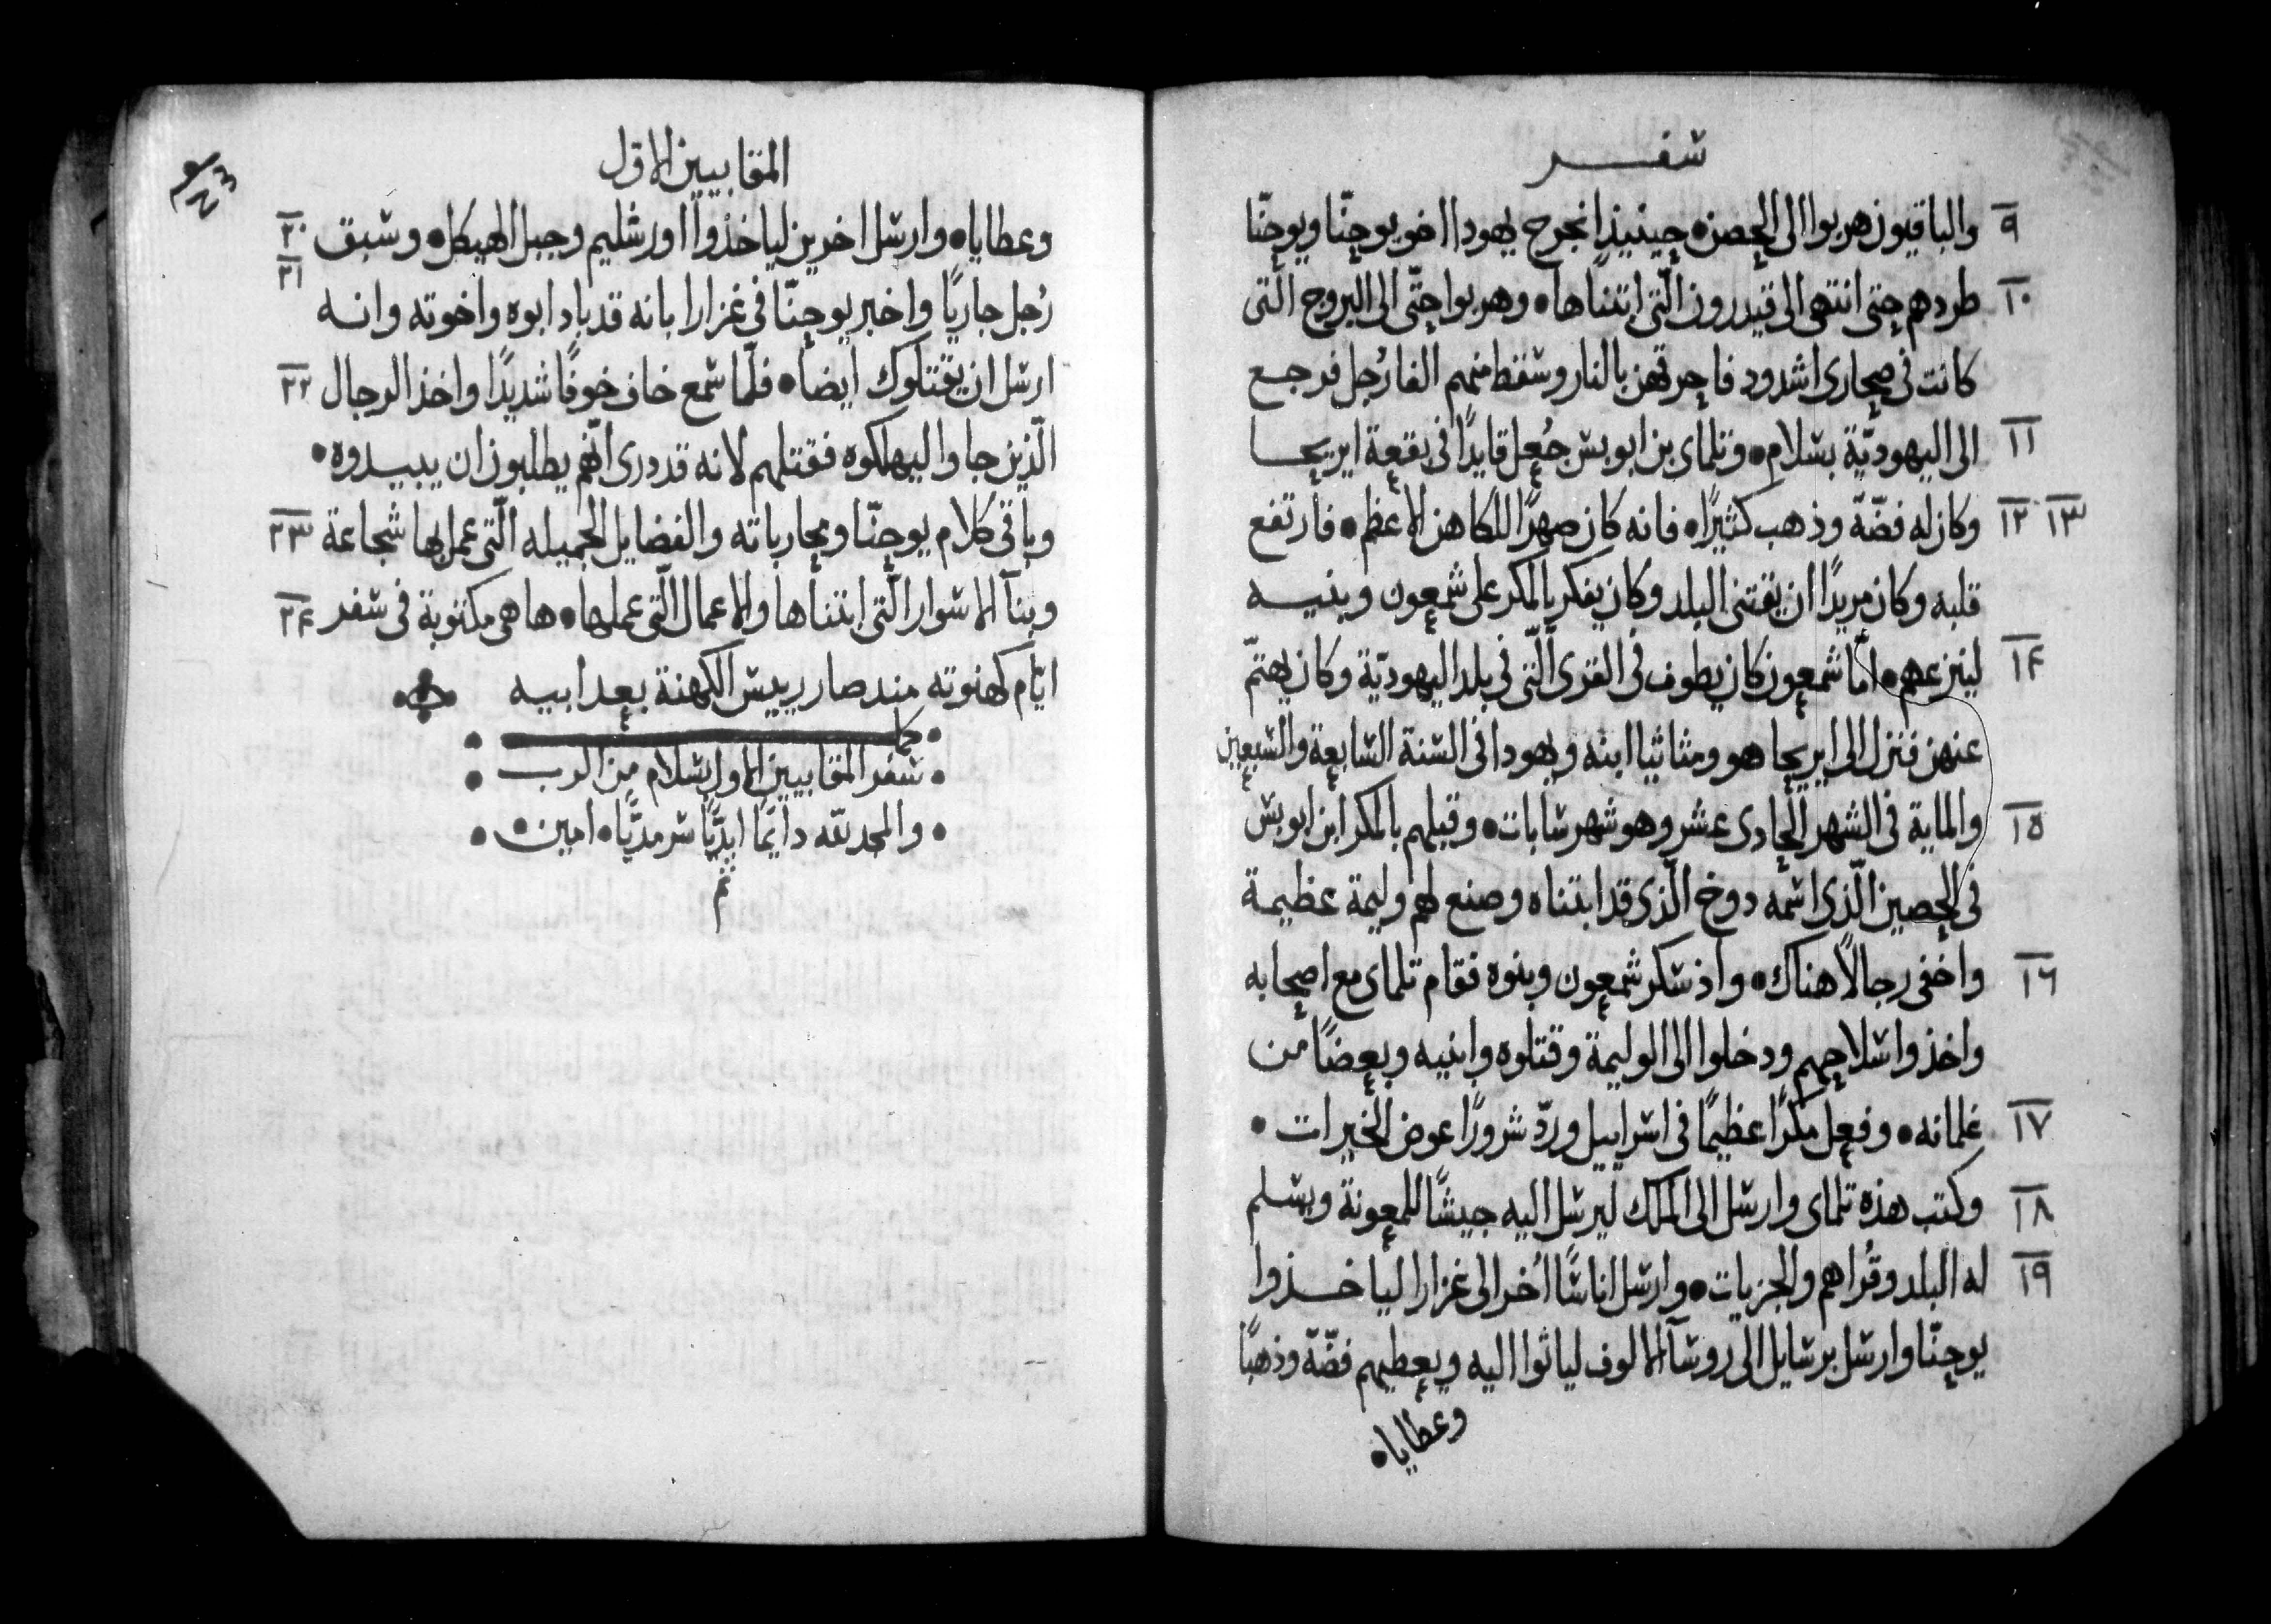 سفر
٩ والباقيون هربوا الى الحصن• حينيذٍ انجرح يهودا اخو يوحنّا ويوحنّا
١٠ طردهم حتى انتهى الى قيدرون الّتى ابتناها• وهربوا حتّى الى البروج الّتى
كانت فى صحارى اشدود فاحرقهن بالنار وسقط منهم الفا رُجل فرجع
١١ الى اليهوديّة بسلام• وتلماى بن ابوبس جُعل قايدًا فى بقعة ايريحا
١٢ ١٣ وكان له فضّة وذهب كثيرًا• فانه كان صهرًا للكاهن الاعظم• فارتفع
قلبه وكان مريدًا ان يقتنى البلد وكان يفكر بالمكر على شمعون وبنيه
١٤ لينزعهم• امّا شمعون كان يطوف فى القرى الّتى فى بلد اليهوديّة وكان يهتمّ
عنهن فنزل الى ايريحا هو ومثاثيا ابنه ويهودا فى السّنة السّابعة والسّبعين
١٥ والماية فى الشهر الحادى عشر وهو شهر سابات• وقبلهم بالمكر ابن ابوبس
فى الحصين الّذى اسمه دوخ الّذى قد ابتناه وصنع لهم وليمة عظيمة
١٦ واخفى رجالًا هناك• واذ سكر شمعون وبنوه فقام تلماى مع اصحابه
واخذوا سلاحهم ودخلوا الى الوليمة وقتلوه وابنيه وبعضًا من
١٧ غلمانه• وفعل مكرًا عظيمًا فى اسراييل وردّ شرورًا عوض الخيرات•
١٨ وكتب هذه تلماى وارسل الى الملك ليرسل اليه جيشًا للمعونة ويسلم
١٩ له البلد وقُراهم والجزيات• وارسل اناسًا اُخر الى غزارا لياخذوا
يوحنّا وارسل برسايل الى روسآ الالوف لياتوا اليه ويعطيهم فضّة وذهبًا
وعطايا•
المقابيين الاول
وعطايا• وارسل اخرين لياخذوا اورشليم وجبل الهيكل• وسبق ٢٠ ٢١
رُجل جاريًا واخبر يوحنّا فى غزارا بانه قد باد ابوه واخوته وانه
ارسل ان يقتلوك ايضا• فلمّا سمع خاف خوفًا شديدًا واخذ الرجال ٢٢
الّذين جاوا ليهلكوه فقتلهم لانه قد درى انّهم يطلبون ان يبيدوه•
وباقى كلام يوحنّا ومحارباته والفضايل الجميله الّتى عمل بها شجاعة ٢٣
وبنآ الاسوار الّتى ابتناها والاعمال الّتى عملها• ها هى مكتوبة فى سفر ٢٤
ايّام كهنوته منذ صار رييس الكهنة بعد ابيه
• كمل •
• سفر المقابيين الاول بسلام من الرب •
• والمجد لله دايمًا ابديًّا سرمديًّا• امين •
تم